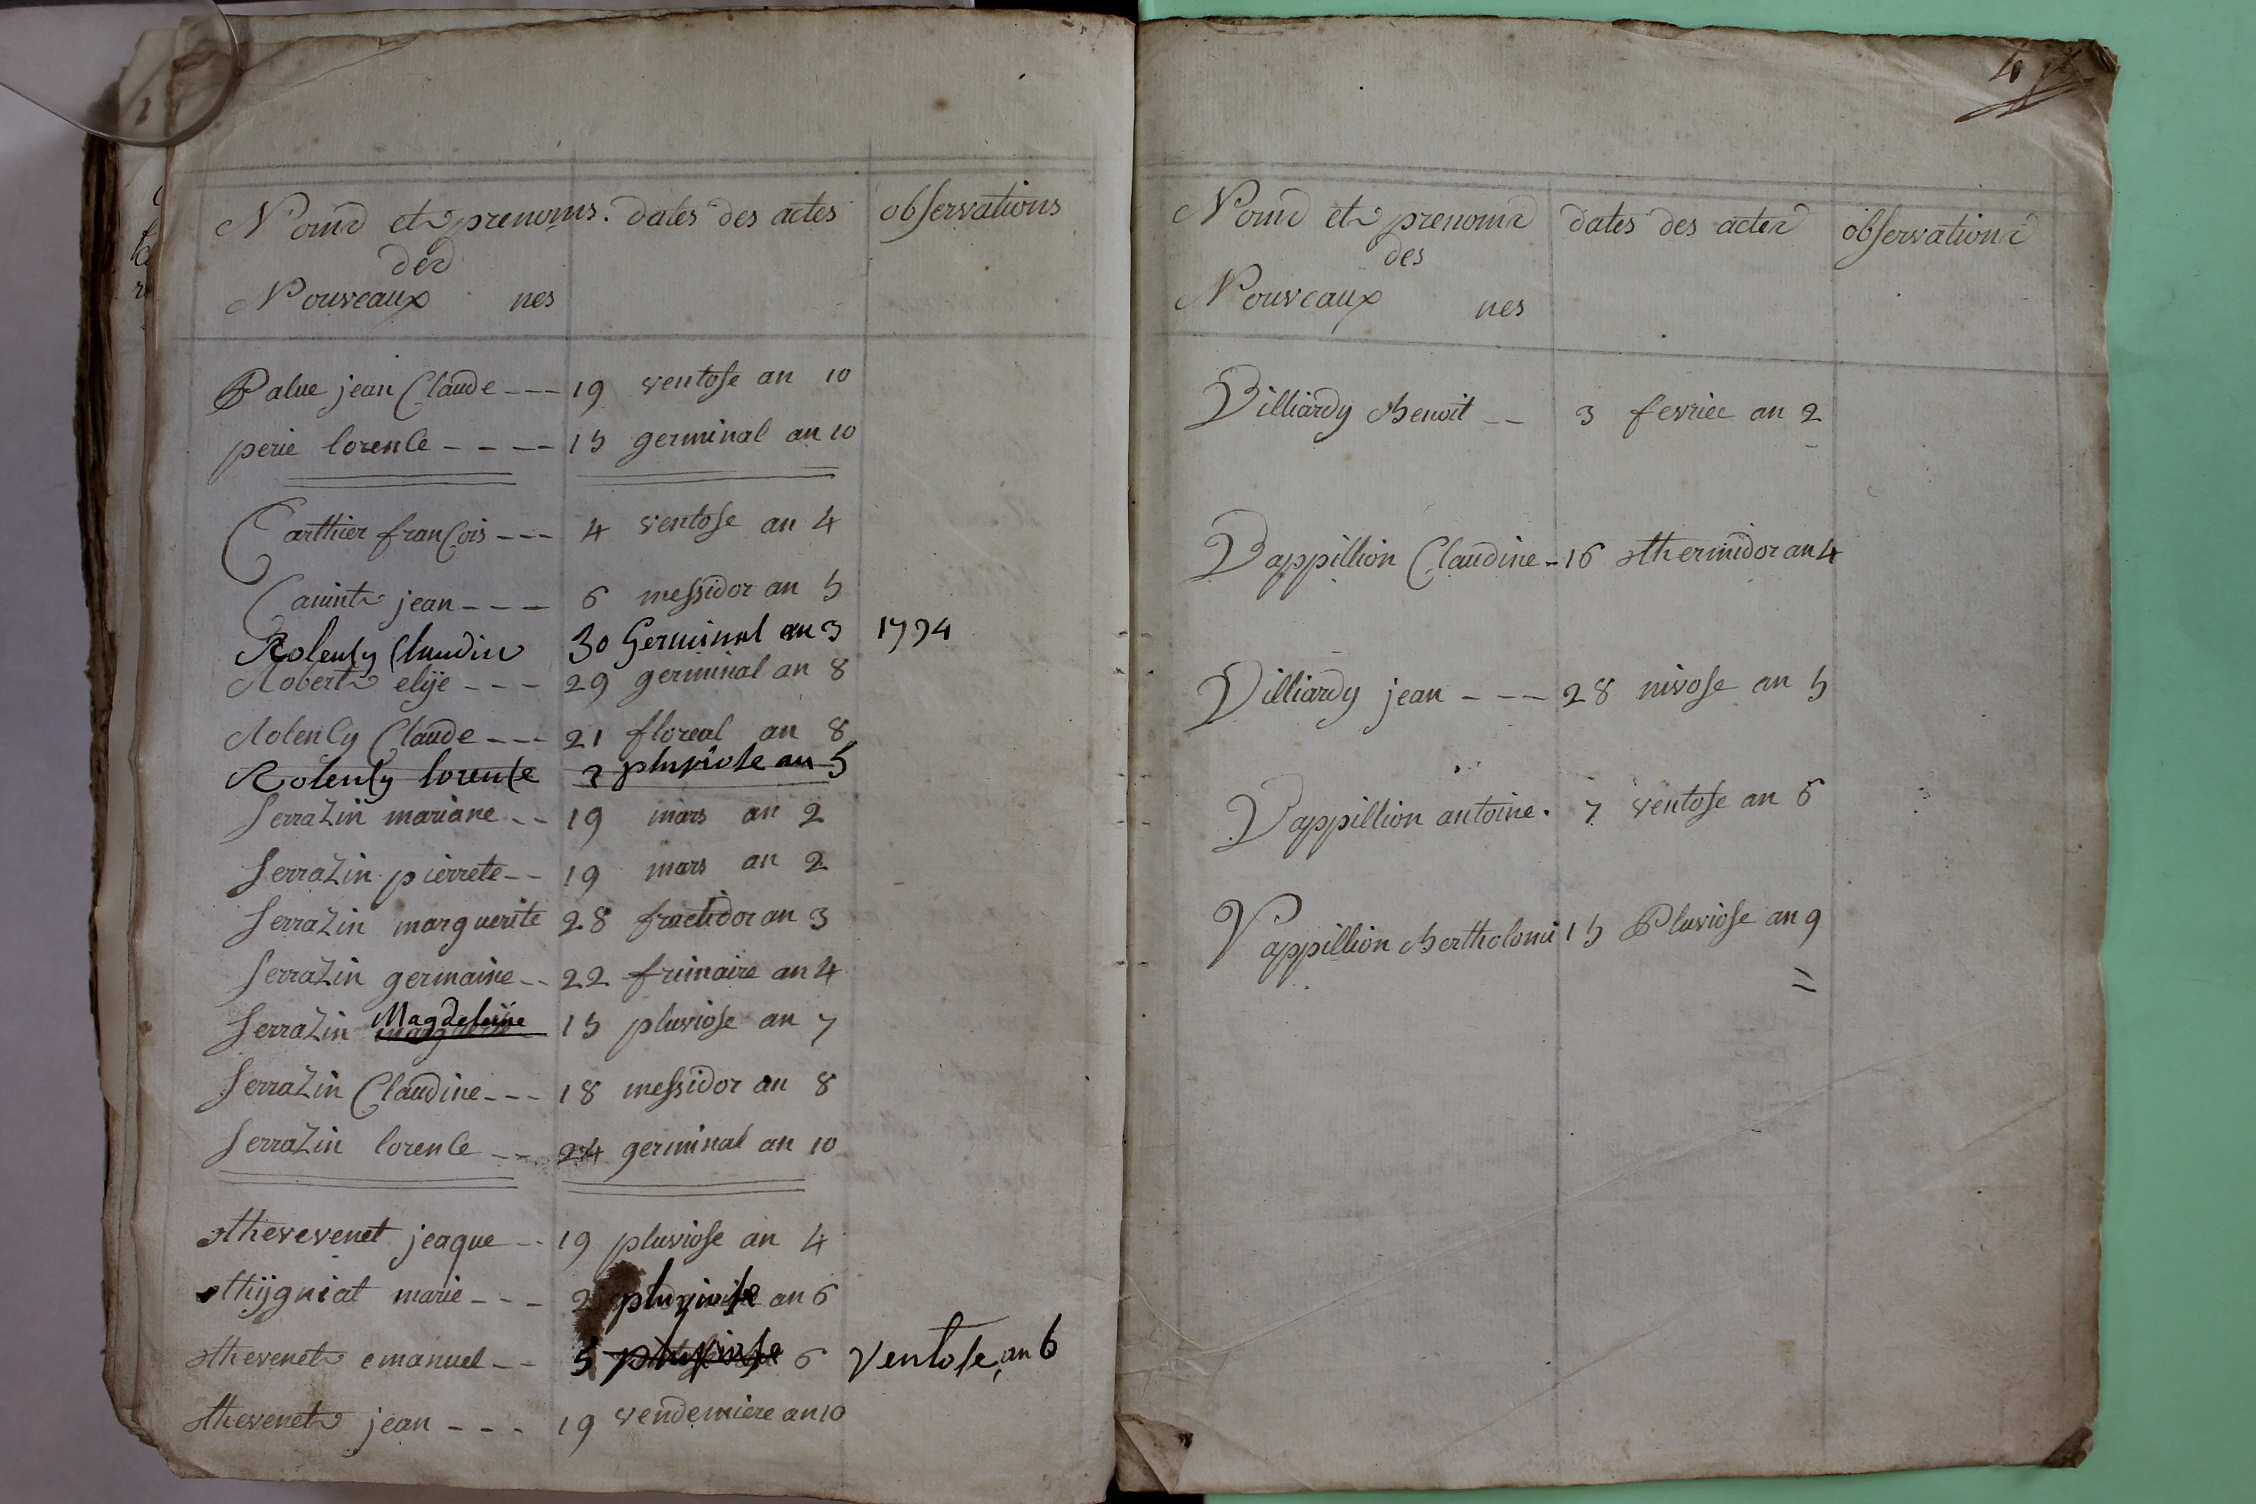 Noms et prenoms. dates des actes observations
des
Nouveaux nes
Palue jean Claude --- 19 ventose an 10
perie lorence ---- 15 germinal an 10
Carthier françois --- 4 ventose an 4
Canint jean --- 6 messidor an 5
Rolency Claudin 30 Germinal an 3 1794
Robert elije --- 29 germinal an 8
Rolency Claude --- 21 floreal an 8
Rolency lorence 2 pluviose an 5
Serrazin mariane -- 19 mars an 2
Serrazin pierrete -- 19 mars an 2
Serrazin marguerite 28 fructidor an 3
Serrazin germaine -- 22 frimaire an 4
Serrazin Magdeleine 15 pluviose an 7
Serrazin Claudine --- 18 messidor an 8
Serrazin lorence -- 24 germinal an 10
thevevenet jeaque -- 19 pluviose an 4
thijgniat marie --- 2 pluviose an 6
thevenet emanuel -- 5 pluviose 6 Ventose, an 6
thevenet jean --- 19 vendemiere an 10
4
Noms et prenoms dates des actes observations
des
Nouveaux nes
Villiardy Benoit -- 3 fevrier an 2
Vappillion Claudine - 16 thermidor an 4
Villiardy jean --- 28 nivose an 5
Vappillion antoine. 7 ventose an 6
Vappillion Bertholomi 15 Pluviose an 9